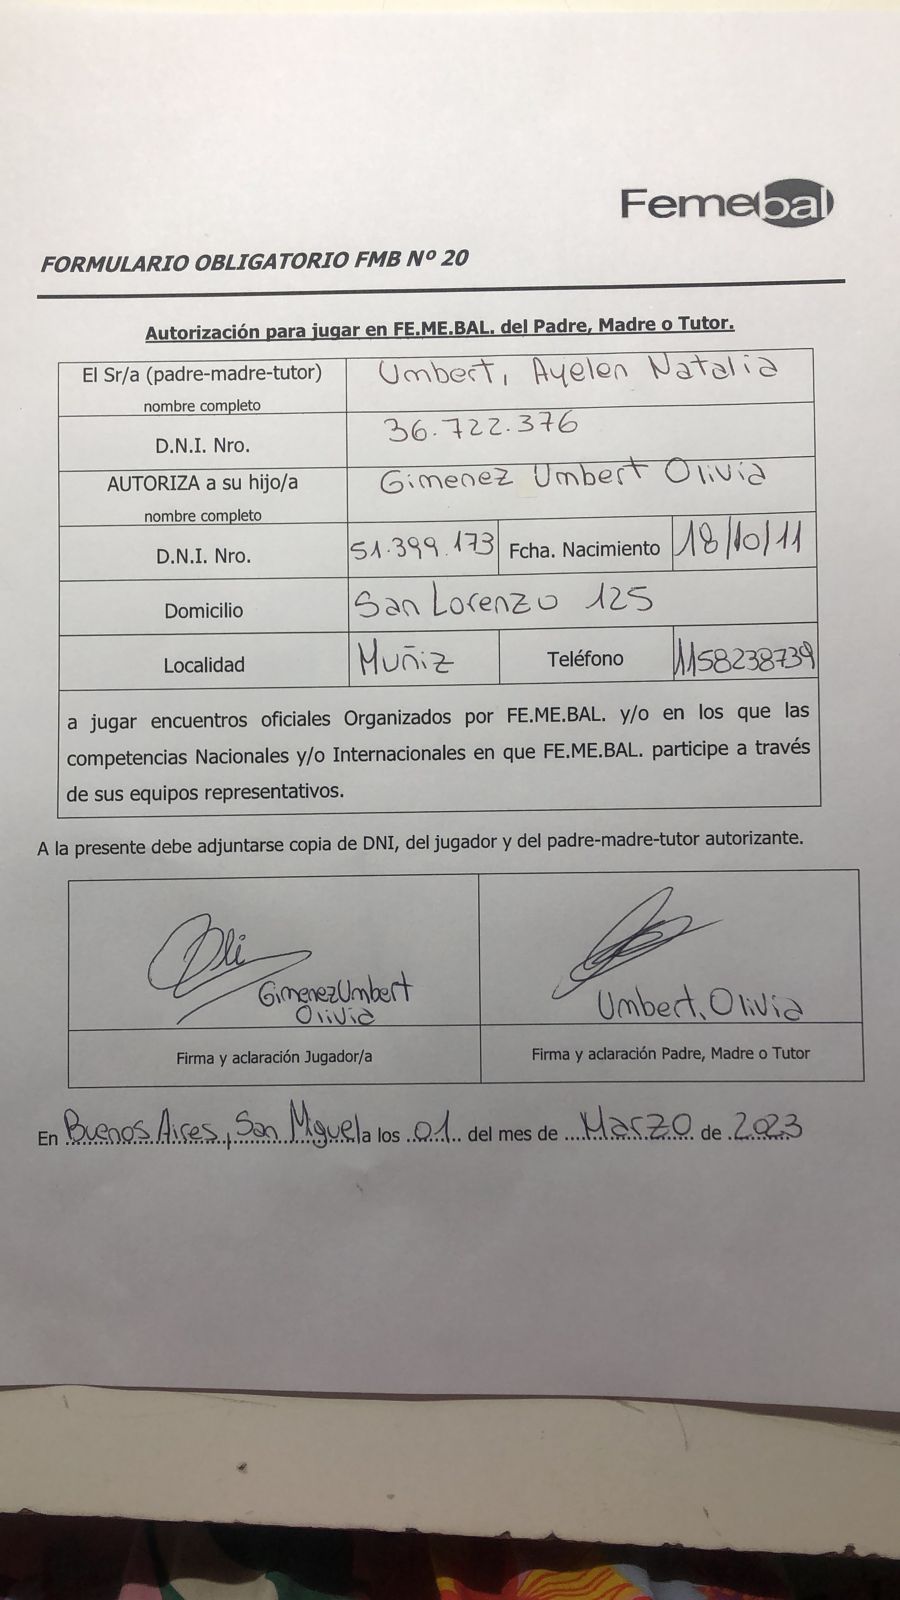 Femebal
FORMULARIO OBLIGATORIO FMB Nº 20
Autorización para jugar en FE.ME.BAL. del Padre, Madre o Tutor.
El Sr/a (padre-madre-tutor) Umbert, Ayelen Natalia
nombre completo
D.N.I. Nro. 36.722.376
AUTORIZA a su hijo/a Gimenez Umbert Olivia
nombre completo
D.N.I. Nro. 51.399.173 Fcha. Nacimiento 18/10/11
Domicilio San Lorenzo 125
Localidad Muñiz Teléfono 1158238739
a jugar encuentros oficiales Organizados por FE.ME.BAL. y/o en los que las
competencias Nacionales y/o Internacionales en que FE.ME.BAL. participe a través
de sus equipos representativos.
A la presente debe adjuntarse copia de DNI, del jugador y del padre-madre-tutor autorizante.
Oli
Gimenez Umbert
Olivia
Umbert, Olivia
Firma y aclaración Jugador/a Firma y aclaración Padre, Madre o Tutor
En Buenos Aires, San Miguel a los 01 del mes de Marzo de 2023